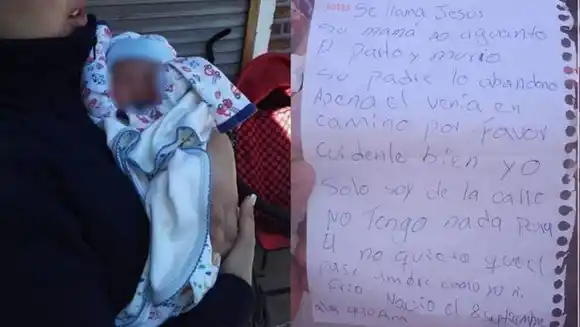 Se llama Jesús
Su mamá no aguanto
El parto y murio
Su padre lo abandono
Apena el venia en
camino por favor
Cuidenle bien yo
Solo soy de la calle
No Tengo nada para
El no quiero que el
pase ambre como yo ni
Frio Nacio el 8 septiembre